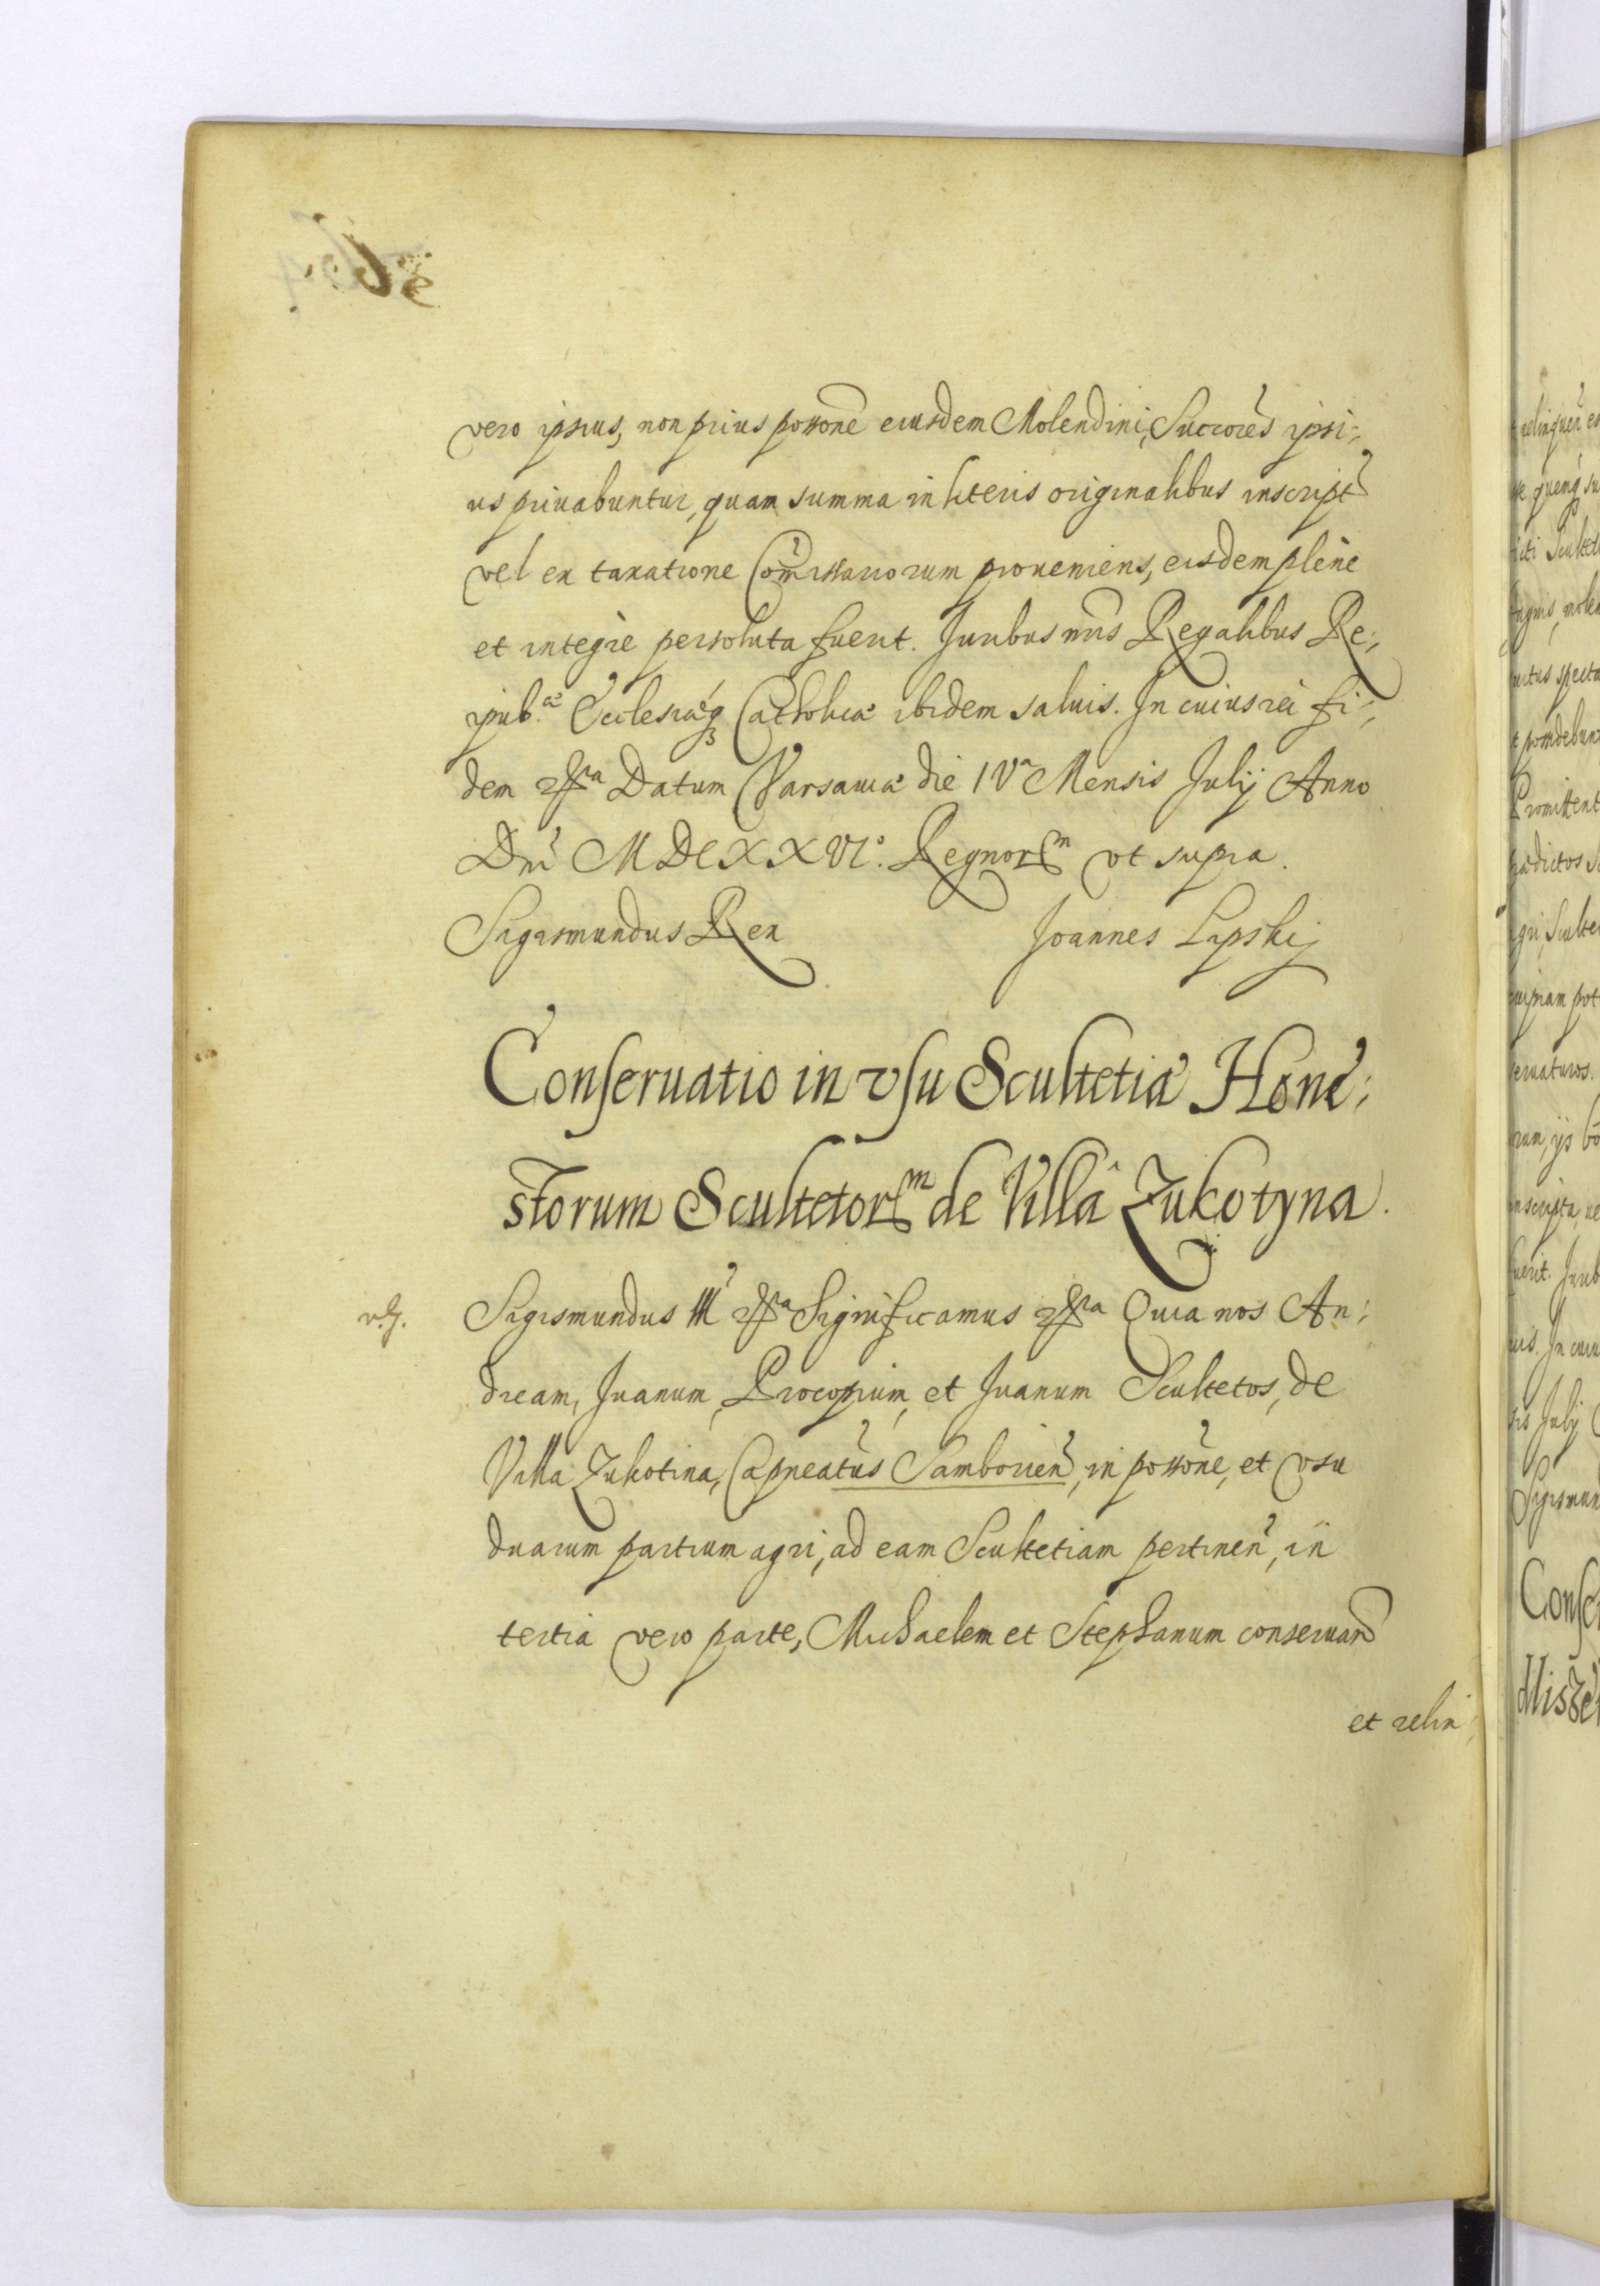 vero ipsius, non prius possone eiusdem Molendini, Succores ipsi:
us priuabuntur, quam summa in literis originalibus inscript
vel ex taxatione Comissariorum proueniens, eisdem plene
et integre persoluta fuerit. Juribus nris Regalibus Re:
ipub.æ Ecclesiæq Catholicæ ibidem saluis. In cuius rei fi:
dem &ra Datum Varsauiæ die IVa Mensis Julij Anno
Dni MDCXXVIo. Regnorum vt supra.
Sigismundus Rex Joannes Lipskij
Conseruatio in vsu Scultetiæ Hone:
storum Scultetorum de Villâ Zukotyna.
Sigismundus III &ra Significamus &ra Quia nos An:
dream, Juanum, Procopium, et Juanum Scultetos, de
Villa Zukotina, Capneatus Samborien, in possone, et vsu
duarum partium agri, ad eam Scultetiam pertinen, in
tertia vero parte, Michaelem et Stephanum conseruand
et relin